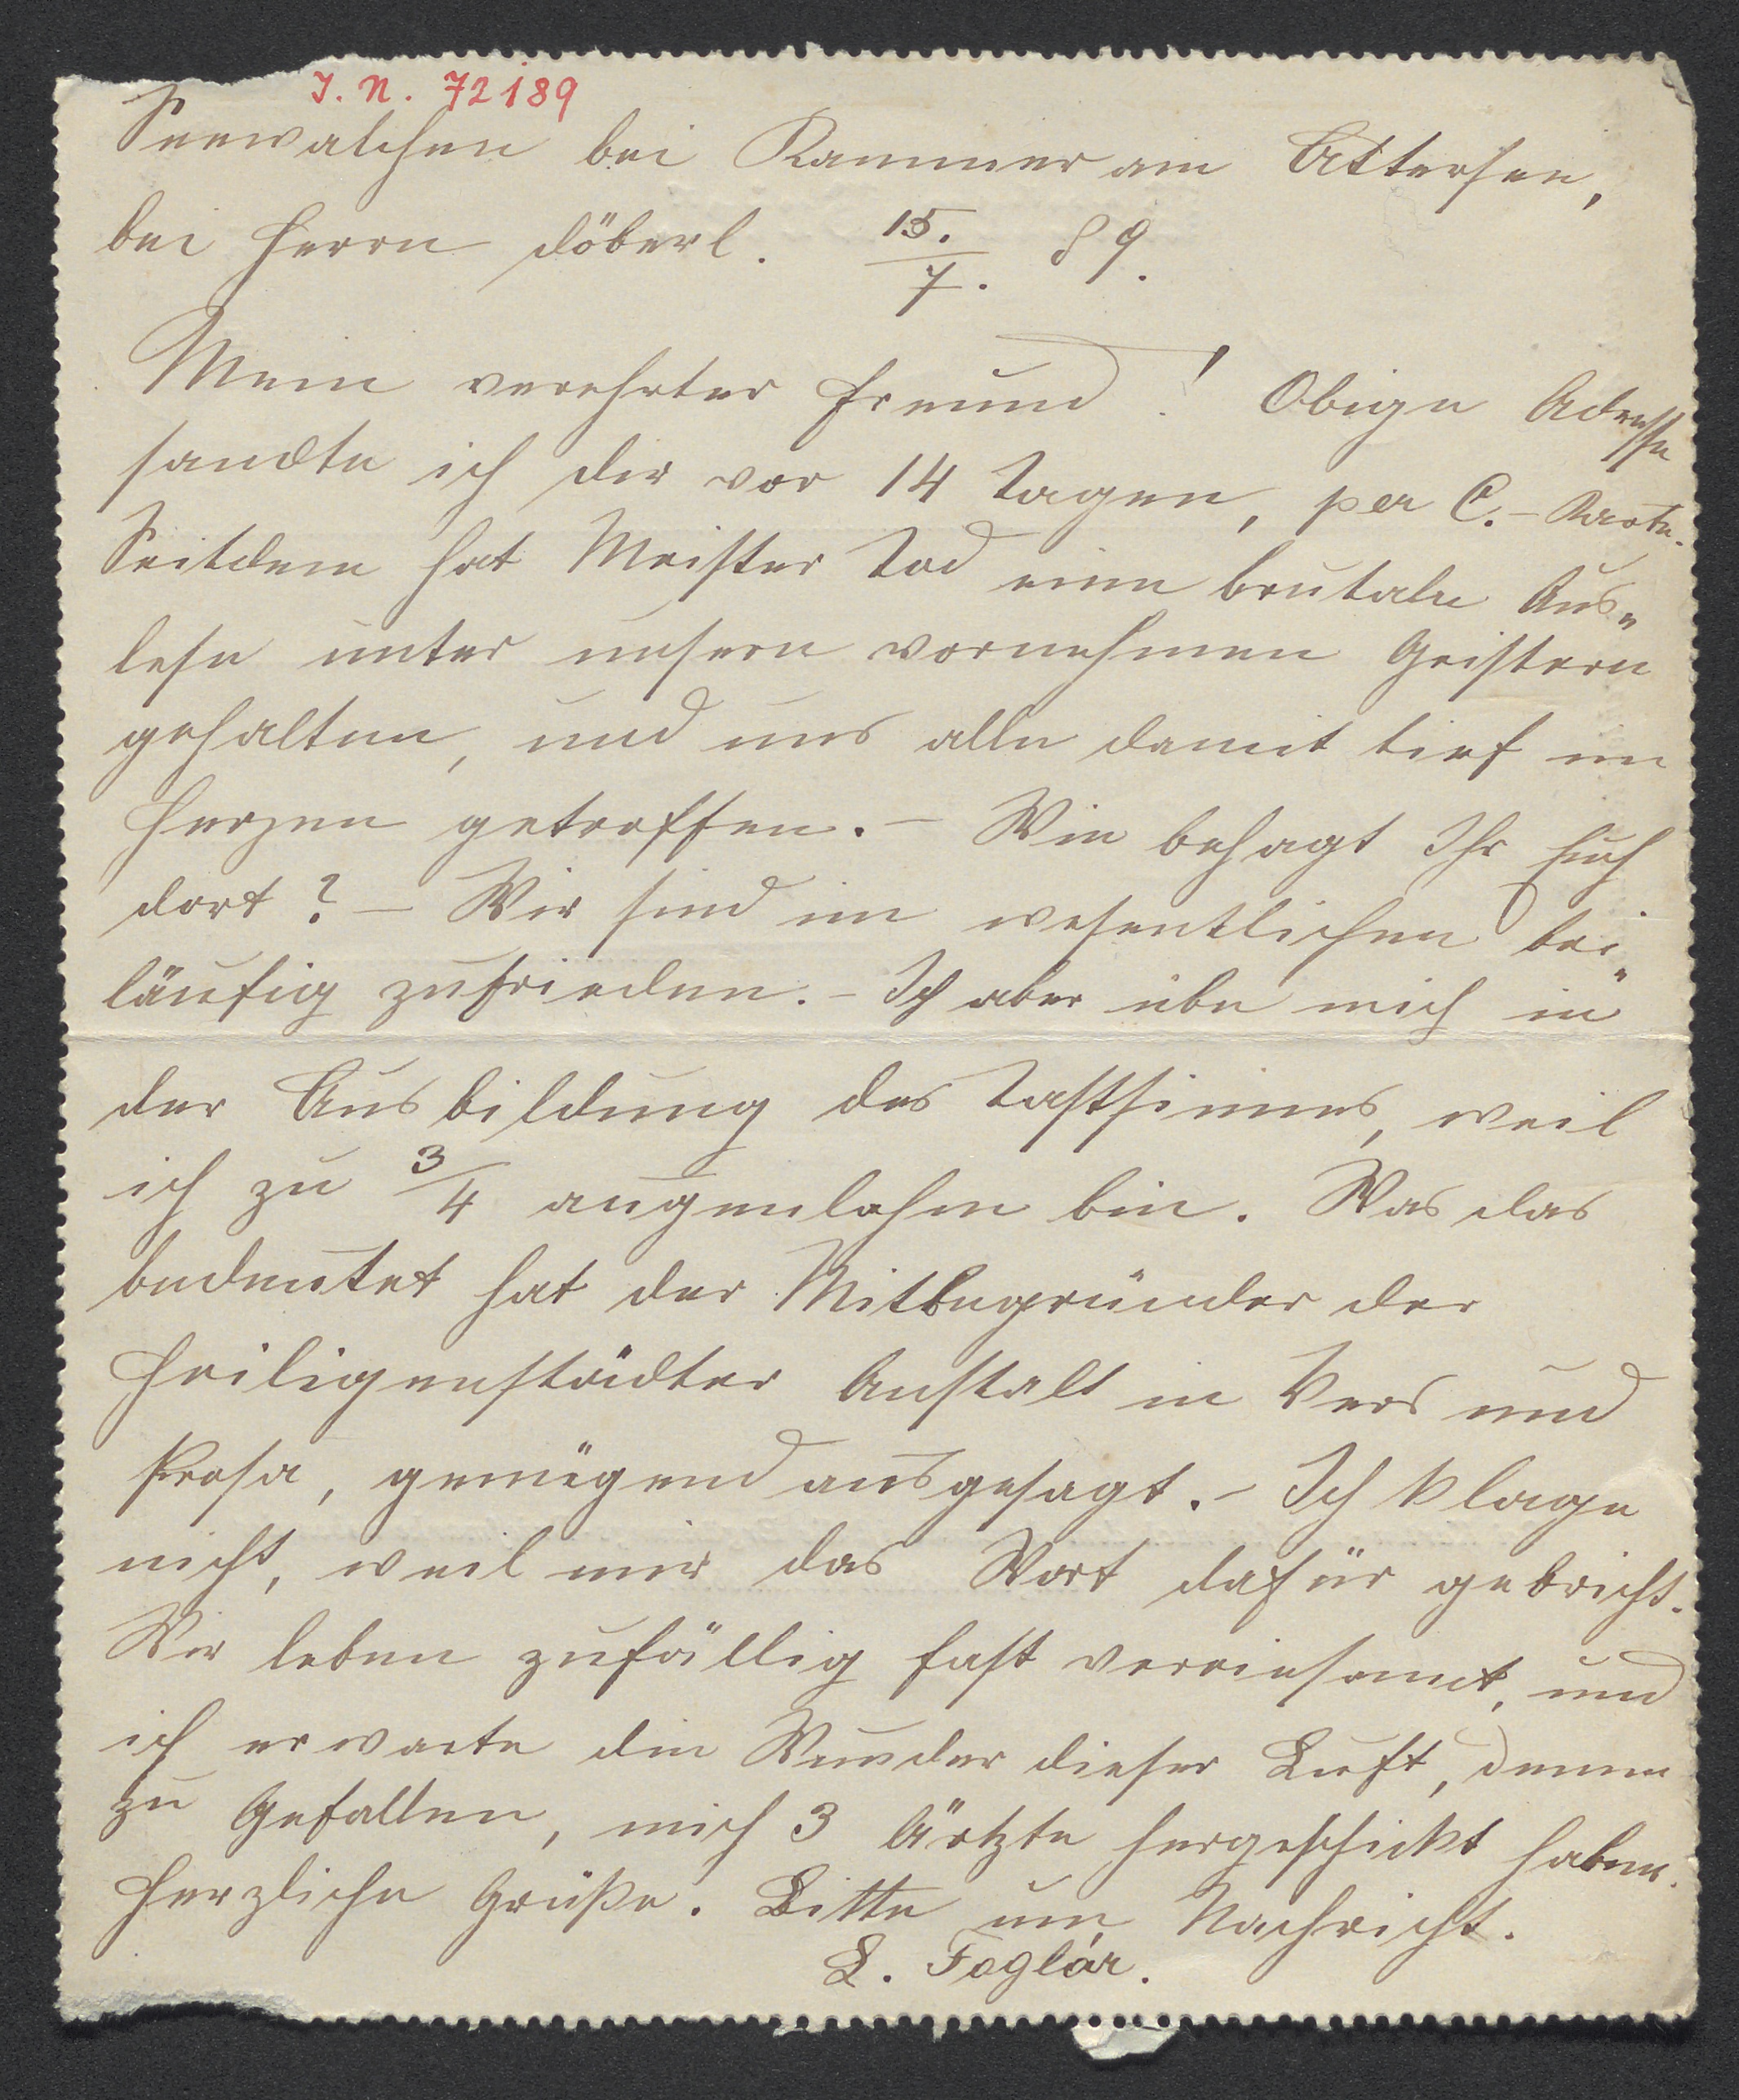 I. N. 72189
Seewalchen bei Kammer am Attersee,
bei Herrn Döberl. 15./7. 89.
Mein verehrter Freund! Obige Adresse
sandte ich dir vor 14 Tagen, per C.-Karte.
Seitdem hat Meister Tod eine brutale Aus„
lese unter unsern vornehmen Geistern
gehalten, und uns alle damit tief im
Herzen getroffen. – Wie behagt Ihr Euch
dort? – Wir sind im wesentlichen bei„
läufig zufrieden. – Ich aber übe mich in
der Ausbildung des Tastsinnes, weil
ich zu 3/4 augenlahm bin. Was das
bedeutet hat der Mitbegründer der
Heiligenstädter Anstalt in Vers und
Prosa, genügend ausgesagt. – Ich klage
nicht, weil mir das Wort dafür gebricht.
Wir leben zufällig fast vereinsamt, und
ich erwarte die Wunder dieser Luft, denen
zu Gefallen, mich 3 Ärtzte hergeschickt haben.
Herzliche Grüße. Bitte um Nachricht.
L. Foglár.